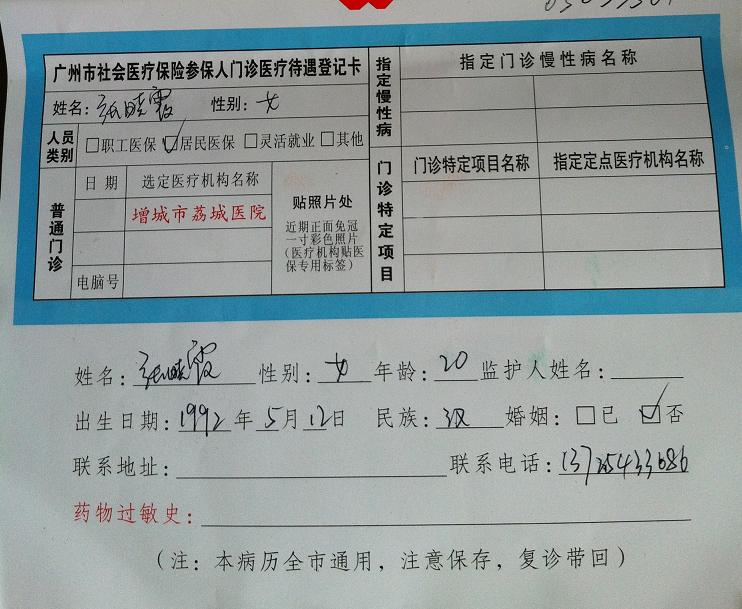 广州市社会医疗保险参保人门诊医疗待遇登记卡
姓名：张晓霞 性别：女
人员类别 □职工医保 ☑居民医保 □灵活就业 □其他
普通门诊
日期 选定医疗机构名称
增城市荔城医院
电脑号
贴照片处
近期正面免冠
一寸彩色照片
（医疗机构贴医
保专用标签）
指定慢性病
指定门诊慢性病名称
门诊特定项目
门诊特定项目名称 指定定点医疗机构名称
姓名：张晓霞 性别：女 年龄：20 监护人姓名：
出生日期：1992年5月12日 民族：汉 婚姻：□已 ☑否
联系地址： 联系电话：13725433686
药物过敏史：
（注：本病历全市通用，注意保存，复诊带回）